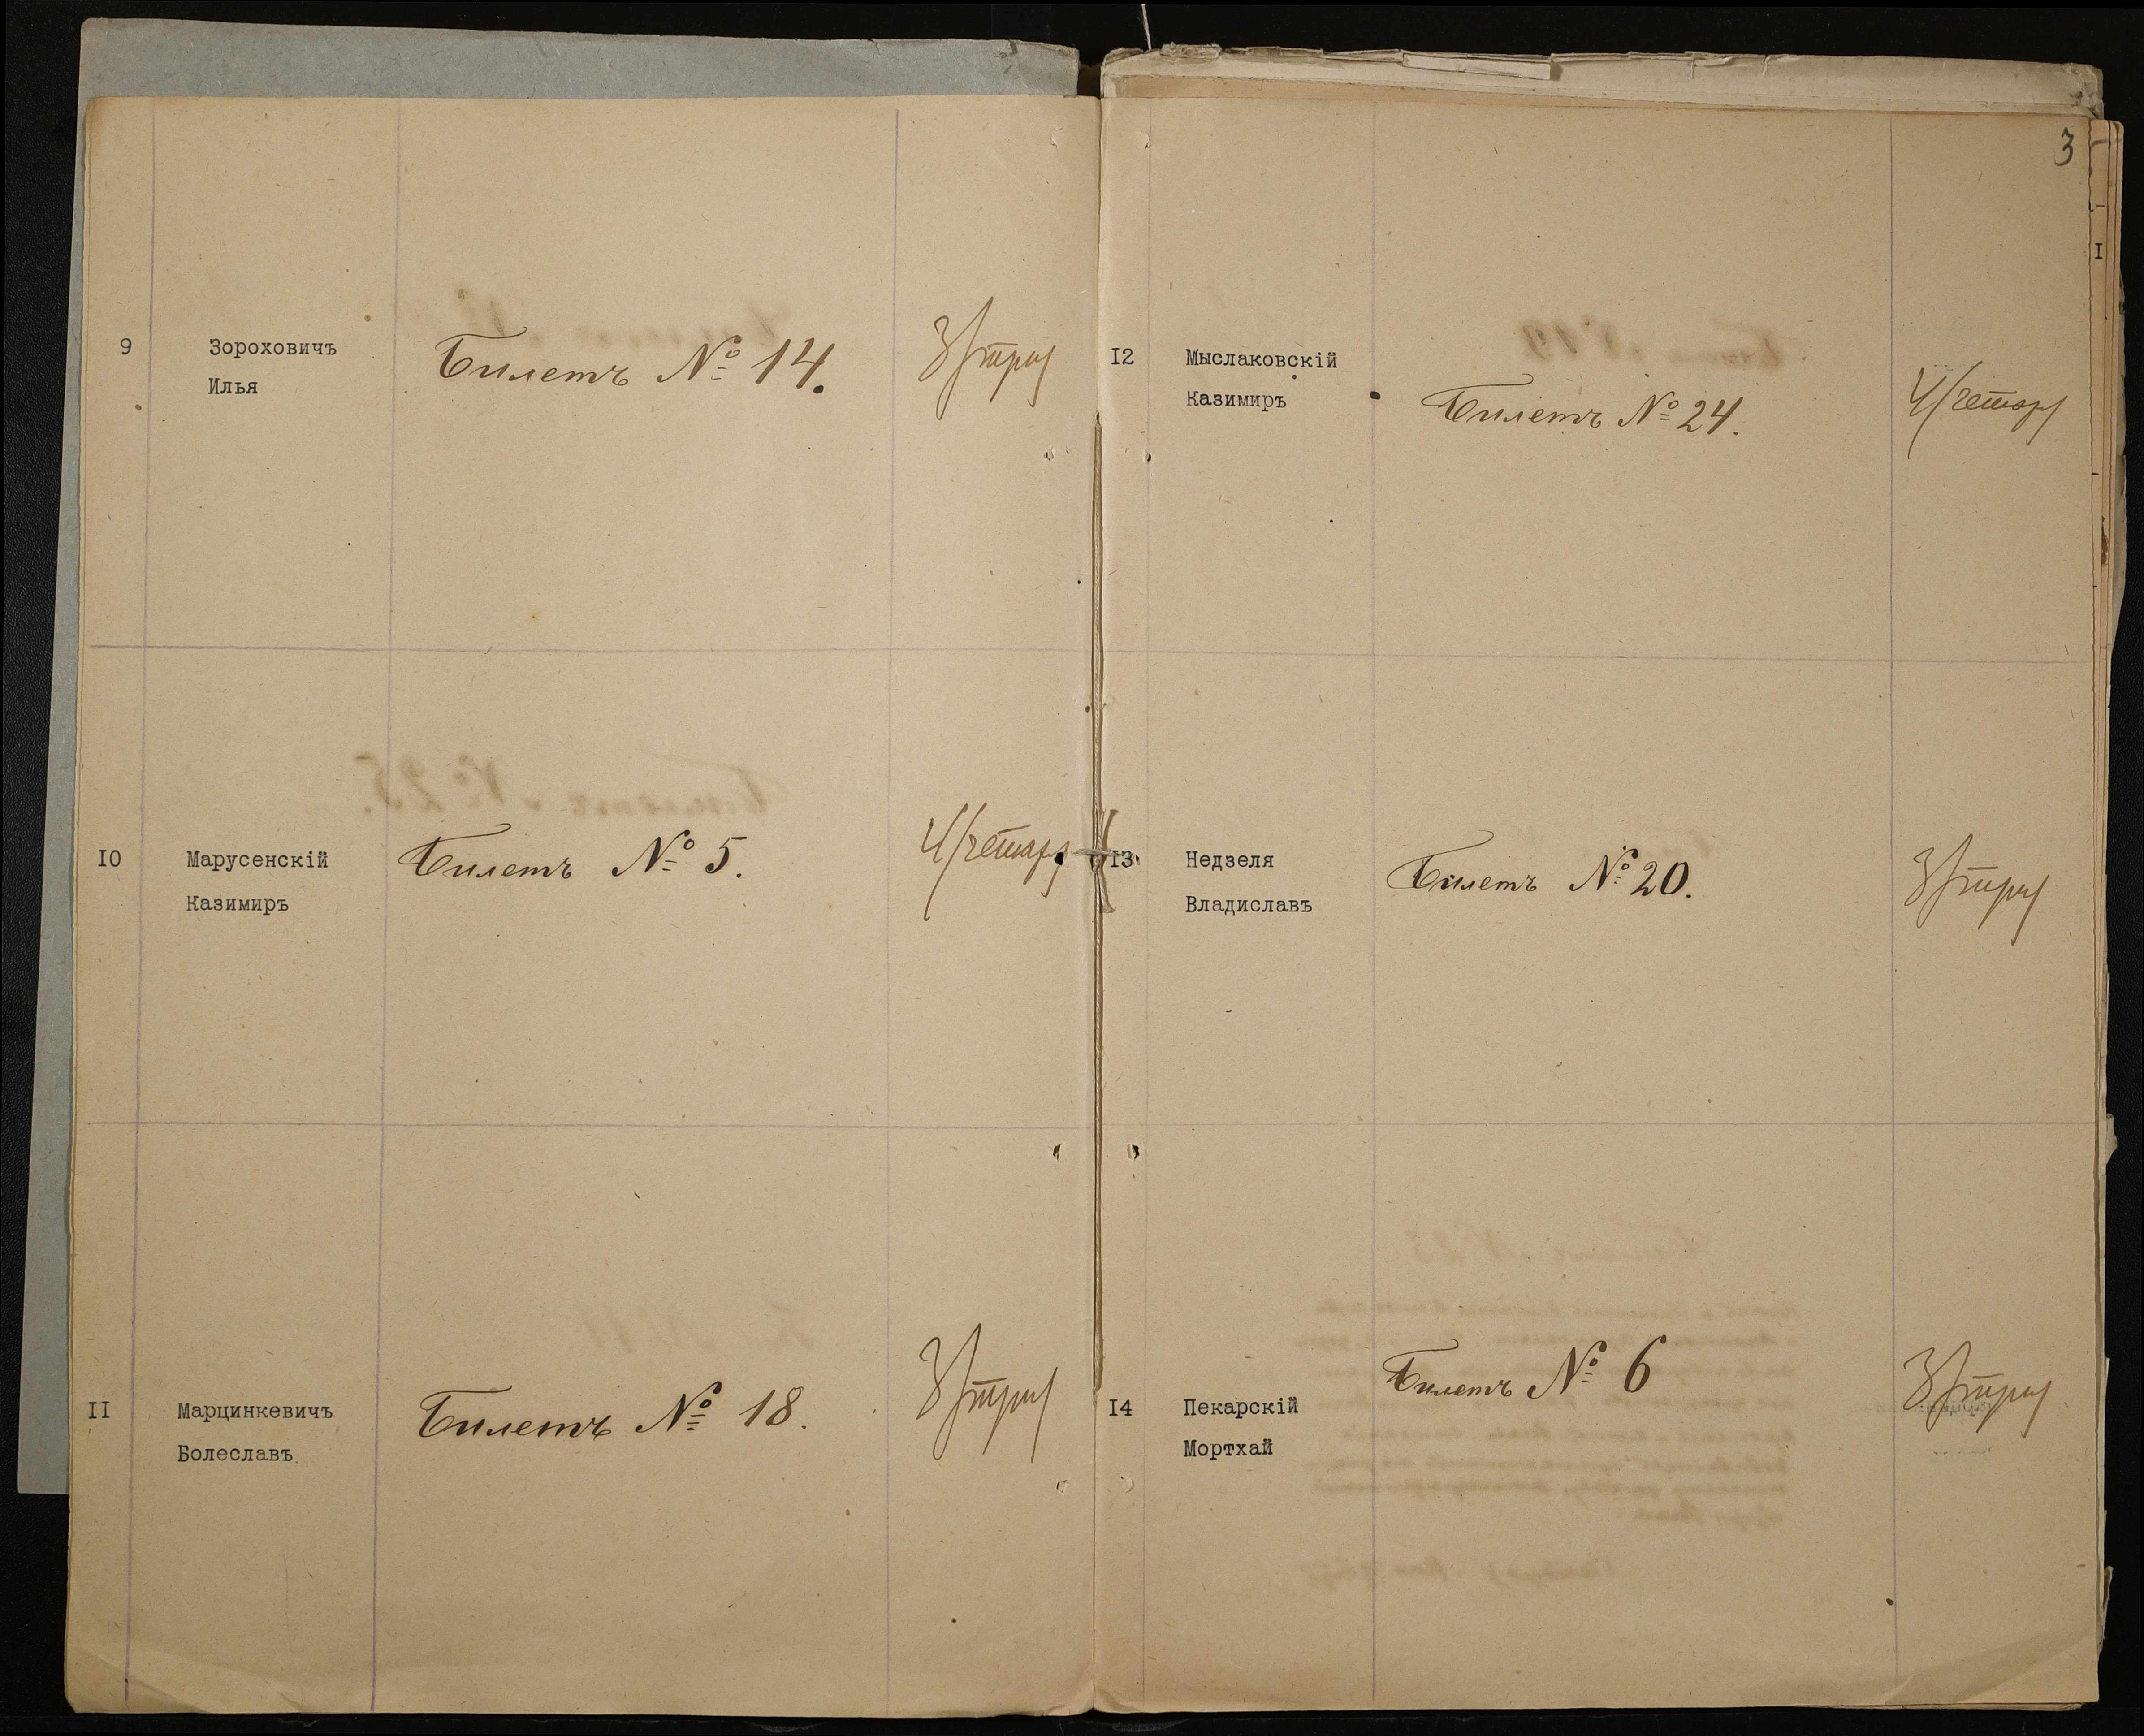 9
Зороховичъ
Илья
Билетъ № 14.
3/три/
10
Марусенскій
Казимиръ
Билетъ № 5.
4/четыре/
II
Марцинкевичъ
Болеславъ
Билетъ № 18.
3/три/
3
I2
Мыслаковскій
Казимиръ
Билетъ № 24.
4/четыре/
I3
Недзеля
Владиславъ
Билетъ № 20.
3/три/
I4
Пекарскій
Мортхай
Билетъ № 6
3/три/
I